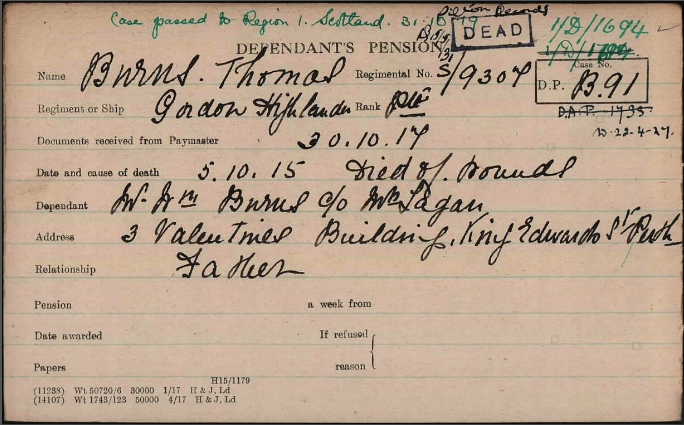 Case passed to Region 1. Scotland. 31.10.19
DEAD
1/D/1694
DEPENDANT'S PENSION
Name Burns. Thomas Regimental No. S/9307
Case No.
D.P. B.91
Regiment or Ship Gordon Highlanders Rank Pte
D.A.P. 1795
Documents received from Paymaster 30.10.17
D-22-4-27.
Date and cause of death 5.10.15 Died of Wounds
Dependant Mr Wm Burns c/o Mrs Lagan
Address 3 Valentines Building, King Edwards St Perth
Relationship Father
Pension a week from
Date awarded If refused
Papers reason
H15/1179
(11238) Wt 50720/6 30000 1/17 H & J, Ld
(14107) Wt 1743/123 50000 4/17 H & J, Ld